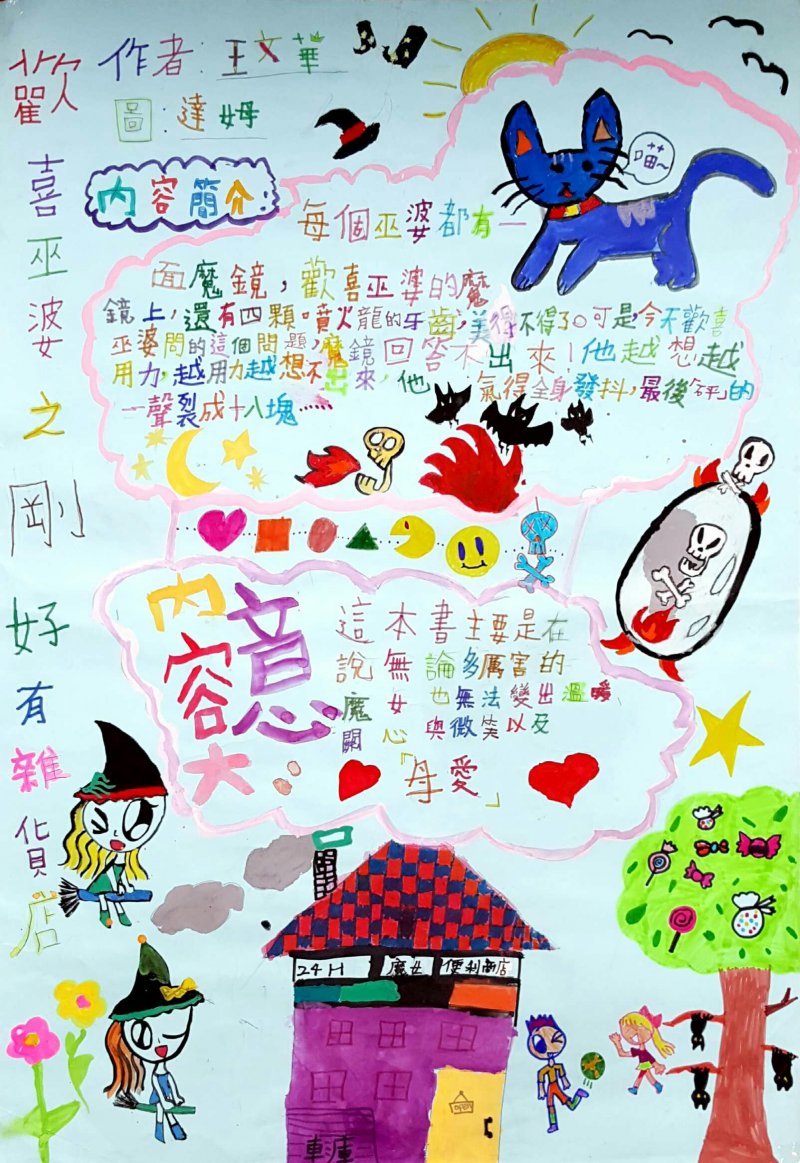 歡喜巫婆之剛好有雜貨店
作者:王文華
圖:達姆
內容簡介:
喵~
每個巫婆都有一
面魔鏡,歡喜巫婆的魔
鏡上,還有四顆噴火龍的牙齒,美得不得了。可是,今天歡喜
巫婆問的這個問題,魔鏡回答不出來!他越想越
用力,越用力越想不出來,他氣得全身發抖,最後「砰」的
一聲裂成十八塊……
內容大意
這本書主要是在
說無論多厲害的
魔女也無法變出溫暖
關心與微笑以及
「母愛」
24H 魔女便利商店
OPEN
車庫